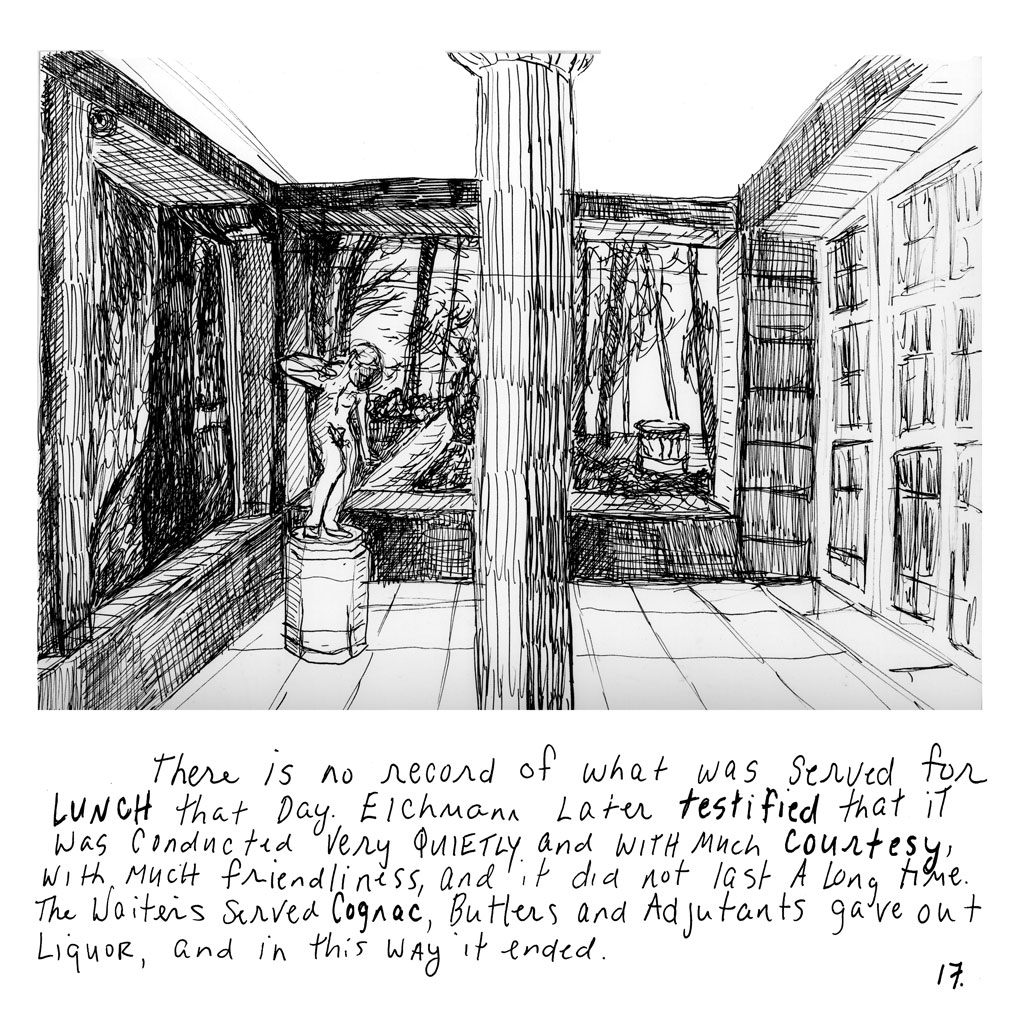 There is no record of what was served for
LUNCH that Day. EIchmann Later testified that iT
was Conducted Very QUIETLY and WITH Much Courtesy,
WITH MUCH friendliness, and it did not last A Long time.
The Waiters Served Cognac, Butlers and Adjutants gave out
LiquoR, and in this WAY it ended.
17.